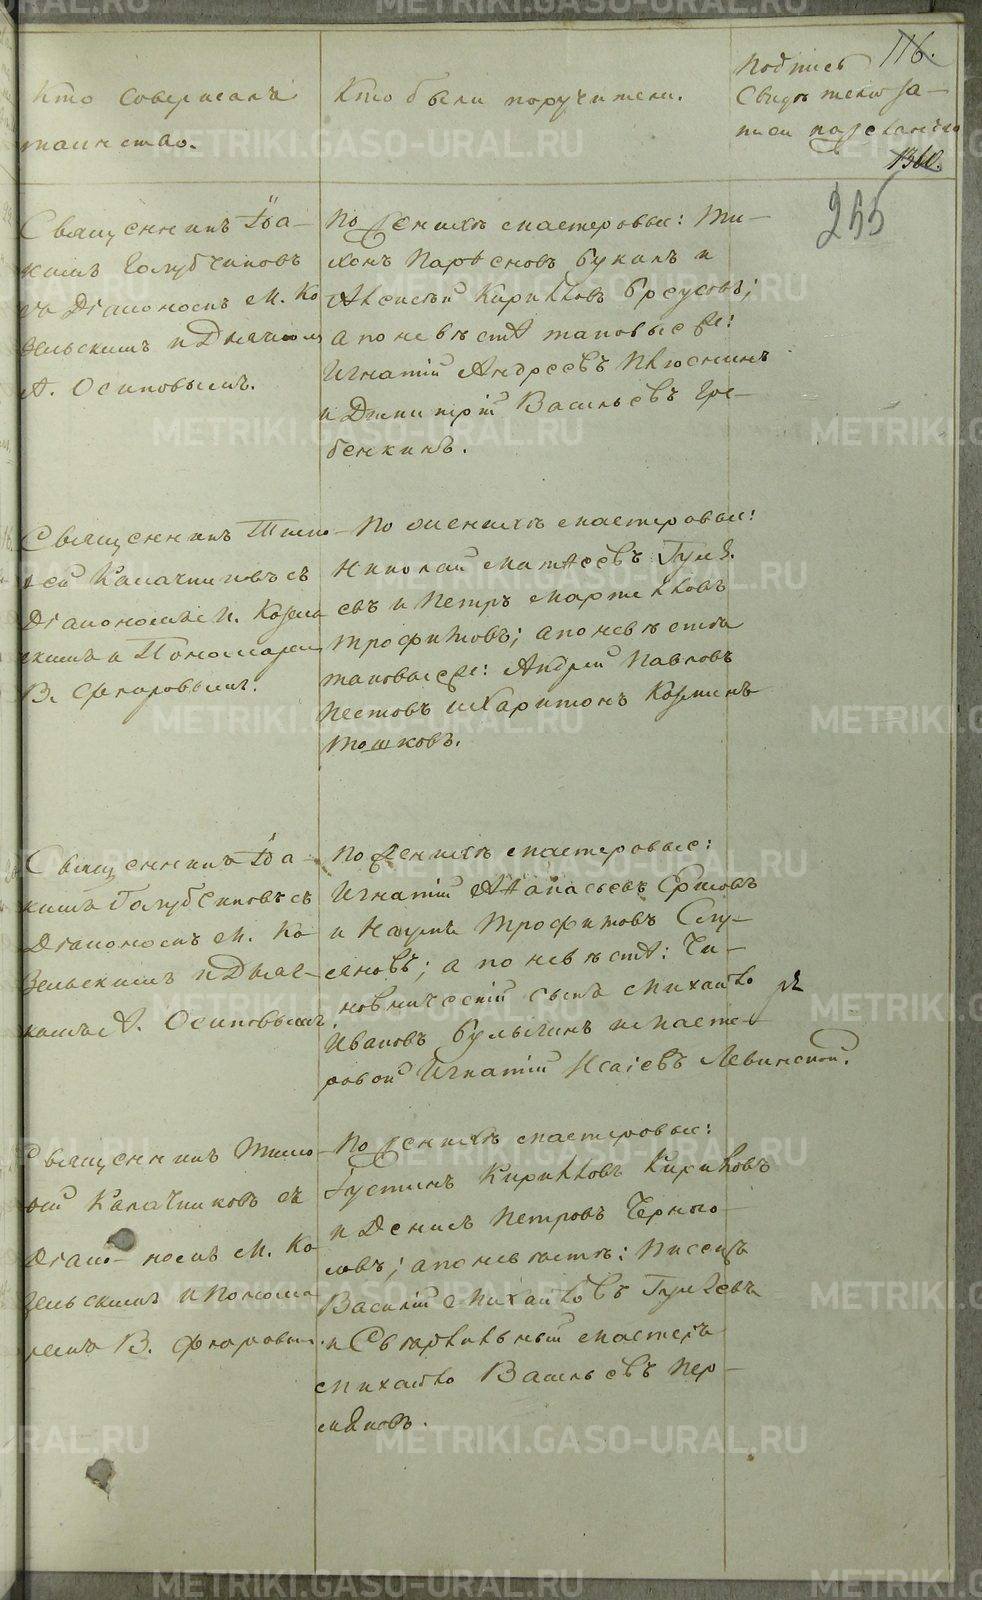 116.
Кто совершалъ
таинство.
Кто были поручители.
Подпись
свидѣтелей за-
писи по желанію
1360.
255
Священникъ Іоа-
кимъ Голубчиковъ
съ Діакономъ М. Ко
зельскимъ и Дьячком
А. Осиповымъ.
По женихѣ мастеровые: Ти-
хонъ Парѳеновъ Букинъ и
Алексѣй Кириловъ Брусовъ;
а по невѣстѣ таковые же:
Игнатій Андреевъ Плюснинъ
и Димитрій Васильевъ Гре-
бенкинъ.
Священникъ Тимо
ѳей Калачниковъ съ
Діакономъ М. Козель
скимъ и Пономаремъ
В. Флоровымъ.
По женихѣ мастеровые:
Николай Матѳеевъ Гуля
евъ и Петръ Мартиновъ
Трофимовъ; а по невѣстѣ
таковые же: Андрей Павловъ
Пестовъ и Харитонъ Козминъ
Тошковъ.
Священникъ Іоа-
кимъ Голубчиковъ съ
Діакономъ М. Ко-
зельскимъ и Дьяч-
комъ А. Осиповымъ.
По женихѣ мастеровые:
Игнатій Аѳанасьевъ Ершовъ
и Наумъ Трофимовъ
а по невѣстѣ: Чи-
новническій сынъ Михайло
Ивановъ Булычинъ и масте-
ровой Игнатій Исаіевъ Левинской.
Священникъ Тимо
ѳей Калачниковъ съ
Діакономъ М. Ко
зельскимъ и Понома
ремъ В. Флоровым.
По женихѣ мастеровые:
Густинъ Кириловъ Кириловъ
и Денисъ Петровъ Черного-
ловъ; а по невѣстѣ: Писецъ
Василій Михайловъ Гуляевъ
и Сварильный мастеръ
Михайло Васильевъ Пер-
мяковъ.
METRIKI.GASO-URAL.RU